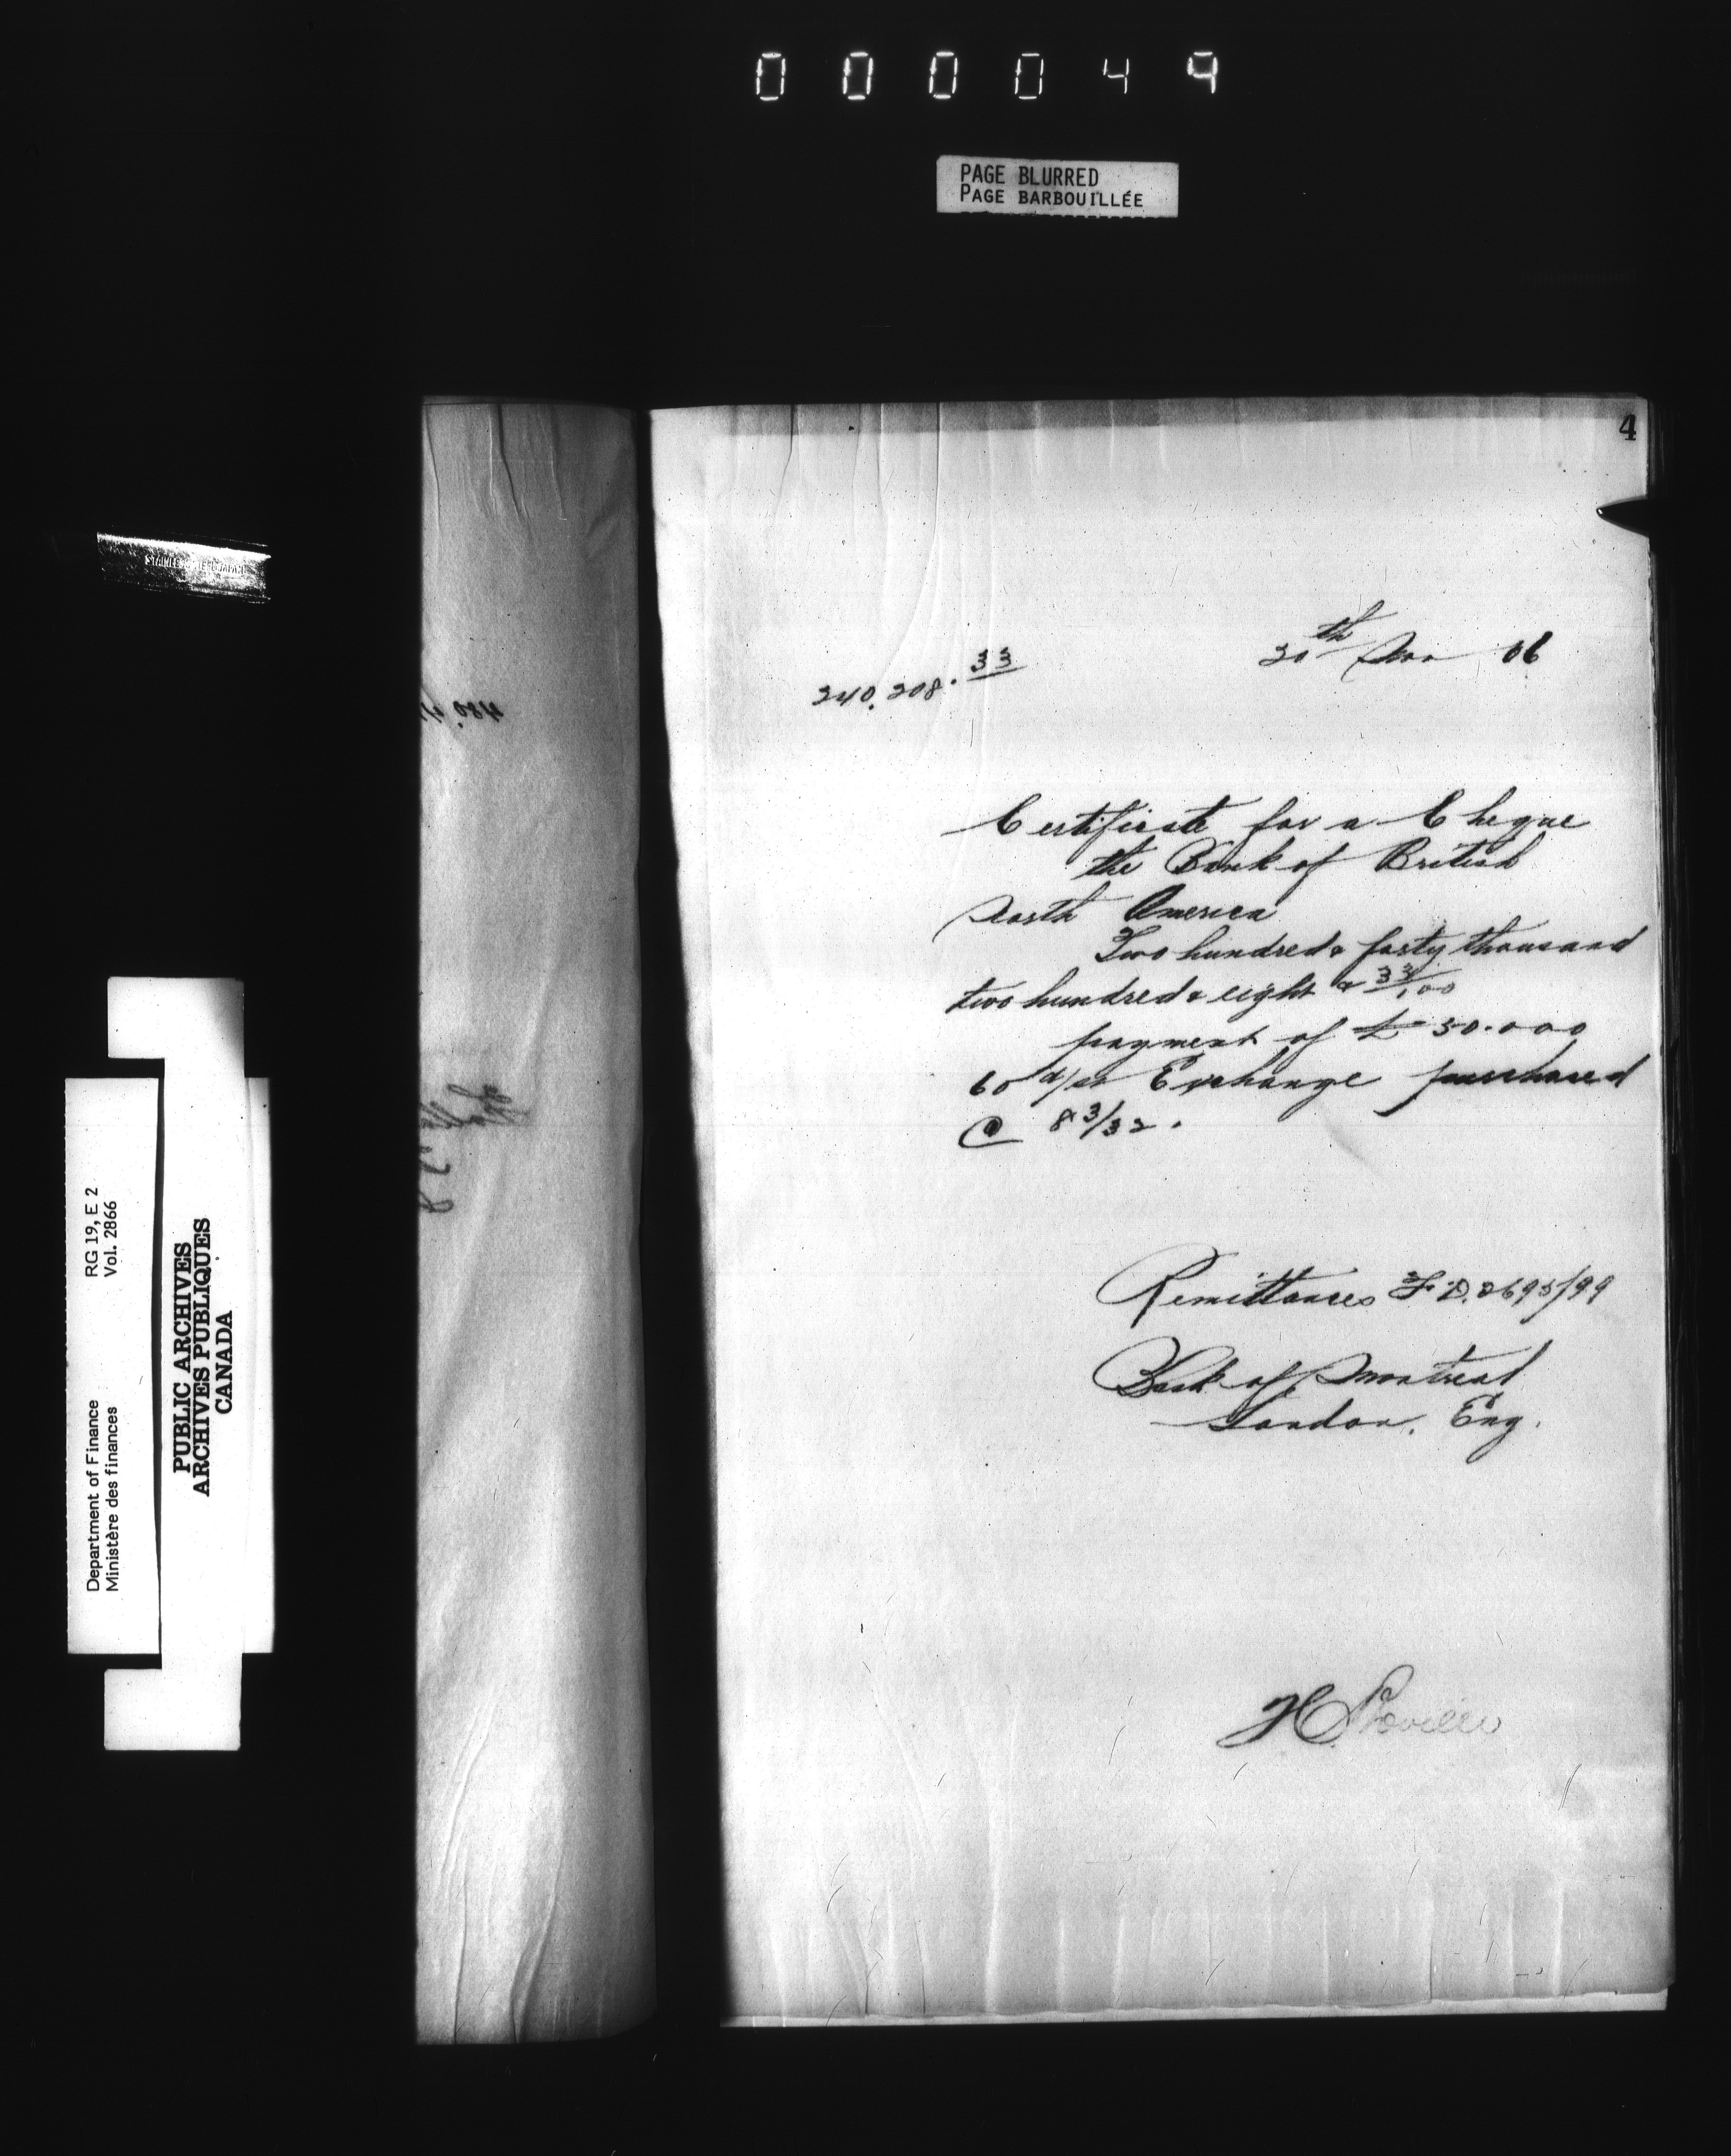 000049
PAGE BLURRED
PAGE BARBOUILLÉE
4
30th Nov 06
240,208.33
Certificate for a Cheque
the Bank of British
North America
Two hundred & forty thousand
two hundred & eight & 33/100
payment of £50.000
60 d/st Exchange purchased
@ 8 3/32.
Remittances F.D. 2695/99
Bank of Montreal
London. Eng.
RG 19, E 2
Vol. 2866
Department of Finance
Ministère des finances
PUBLIC ARCHIVES
ARCHIVES PUBLIQUES
CANADA